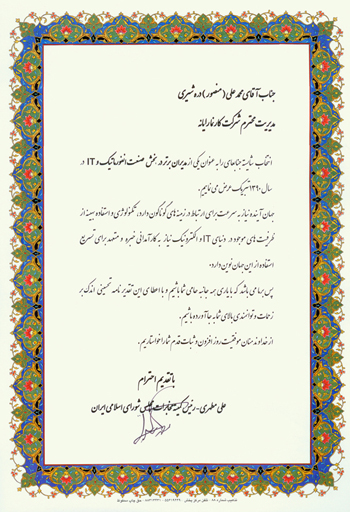 جناب آقای محمد علی (منصور) دره شیری
مدیریت محترم شرکت کارنما رایانه
انتخاب شایسته جنابعالی را به عنوان یکی از مدیران برتر در بخش صنعت انفورماتیک و IT در
سال ۱۳۹۰ تبریک عرض می نماییم.
جهان آینده نیاز به سرعت برای ارتباط در زمینه های گوناگون دارد، تکنولوژی و استفاده بهینه از
ظرفیت های موجود در دنیای IT و الکترونیک نیاز به کارآمدانی خبره و متعهد برای تسریع
استفاده از این جهان نوین دارد.
پس بر ما می باشد که با یاری همه جانبه حامی شما باشیم و با اعطای این تقدیر نامه تحسینی اندک بر
زحمات و توانمندی بالای شما به جا آورده باشیم.
از خداوند منان موفقیت روز افزون و ثبات قدم شما را خواستاریم.
با تقدیم احترام
علی مطهری - رئیس کمیته مخابرات مجلس شورای اسلامی ایران